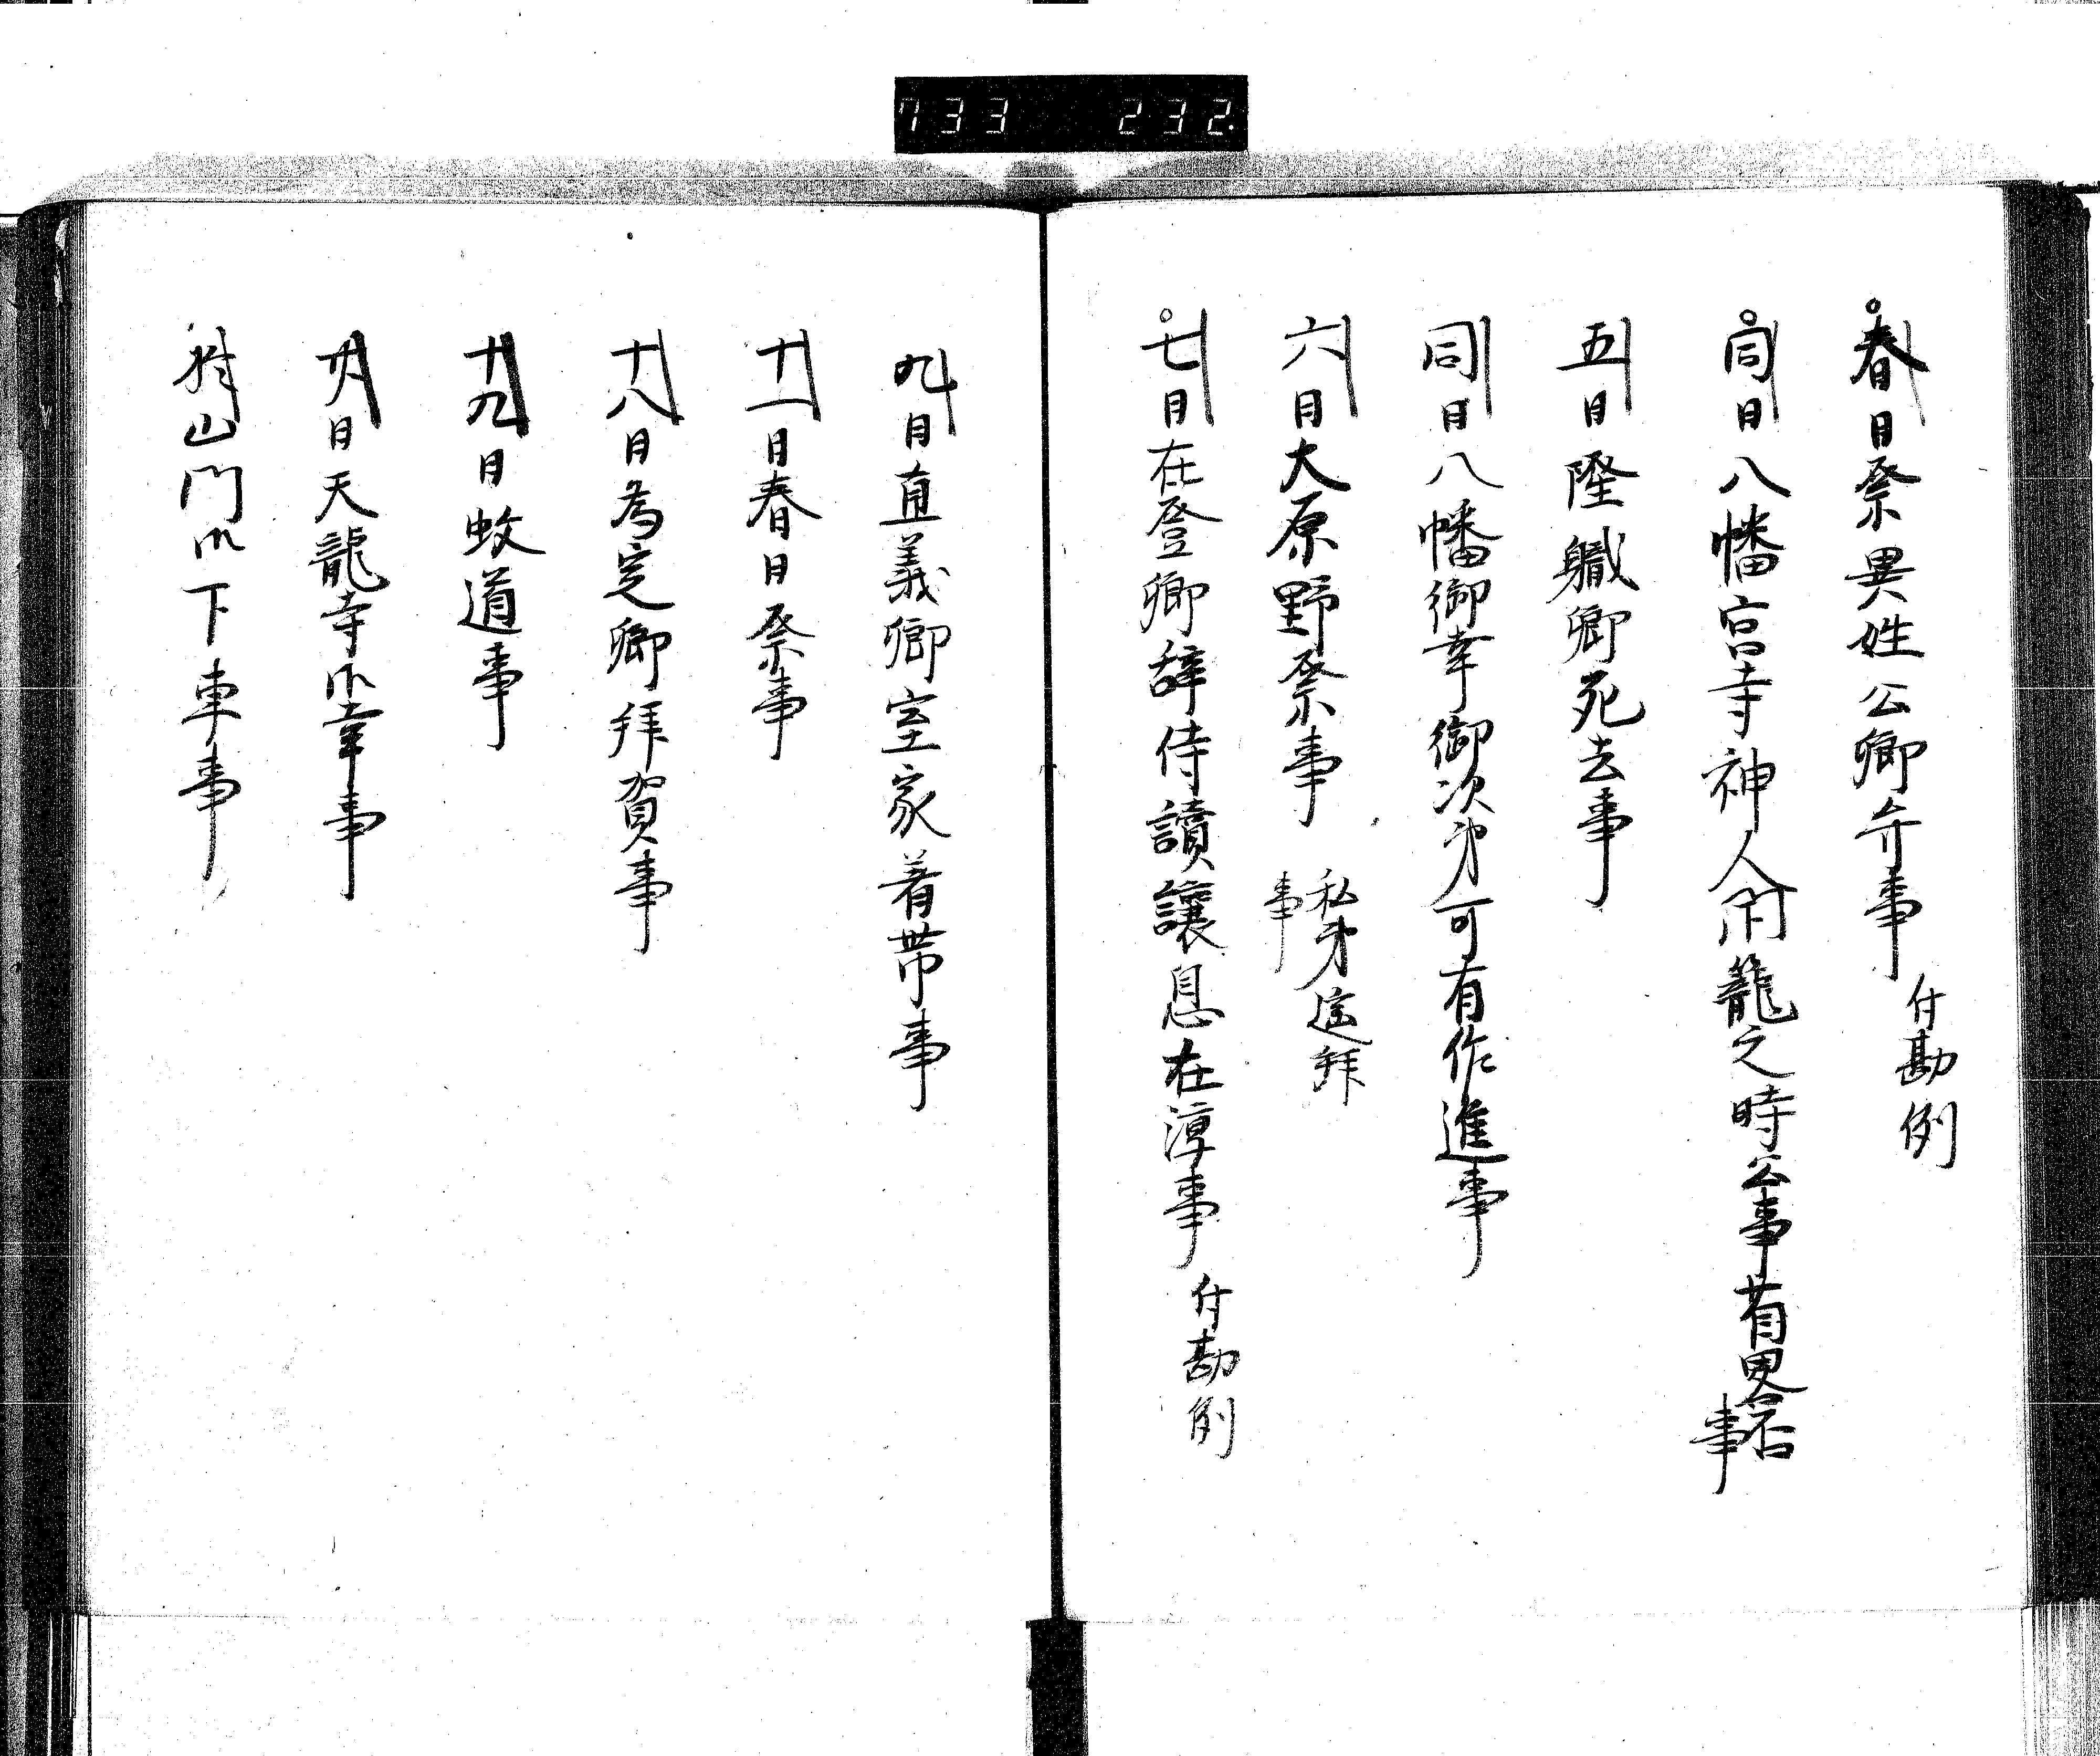 733 232
春日祭異姓公卿弁事 付勘例
同日八幡宮寺神人閇籠之時公事有畧否事
五日隆職卿死去事
同日八幡御幸御次第可有作進事
六日大原野祭事 私第遥拝事
七日在登卿辞侍読譲息在淳事 付勘例
九日直義卿室家着帯事
十一日春日祭事
十八日為定卿拝賀事
十九日蚊道事
廿日天龍寺御幸事
於山門下車事